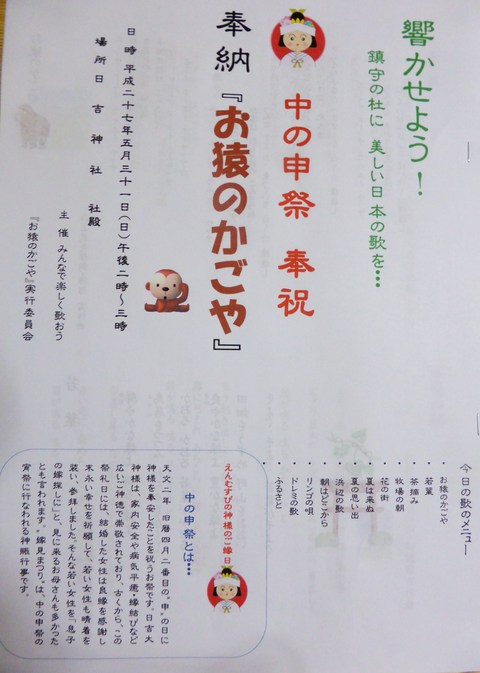 響かせよう！
鎮守の杜に 美しい日本の歌を…
中の申祭 奉祝
奉納『お猿のかごや』
日時 平成二十七年五月三十一日(日)午後二時～三時
場所 日吉神社 社殿
主催 みんなで楽しく歌おう
『お猿のかごや』実行委員会
今日の歌のメニュー
・お猿のかごや
・若葉
・茶摘み
・牧場の朝
・花の街
・夏は来ぬ
・夏の思い出
・浜辺の歌
・朝はどこから
・リンゴの唄
・ドレミの歌
・ふるさと
えんむすびの神様のご縁日
中の申祭とは…
天文二年 旧暦四月二番目の。申。の日に
神様を奉安したことを祝うお祭です。日吉大
神様は、家内安全や病気平癒・縁結びなど
広いご神徳で崇敬されており、古くから、この
祭礼日には、結婚した女性は良縁を感謝し
末永い幸せを祈願して、若い女性も晴着を
装い、参拝しました。そんな若い女性を「息子
の嫁探しに」と、見に来るお母さんも多かった
とも言われます。。嫁見まつり。は、中の申祭の
宵祭に行なわれる神賑行事です。